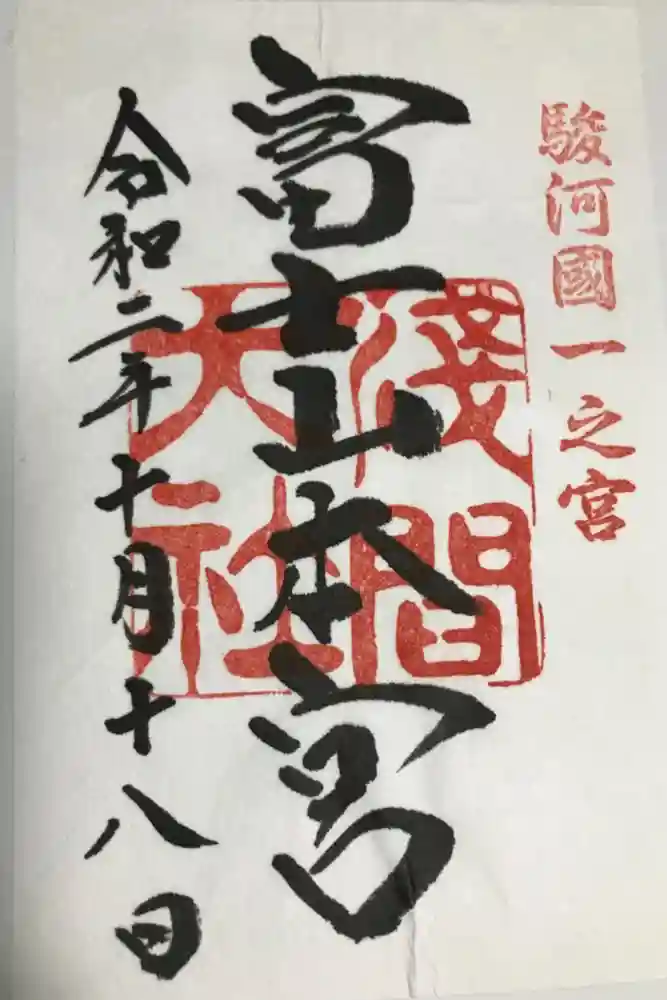 駿河國一之宮
富士山本宮
淺間
大社
令和二年十月十八日